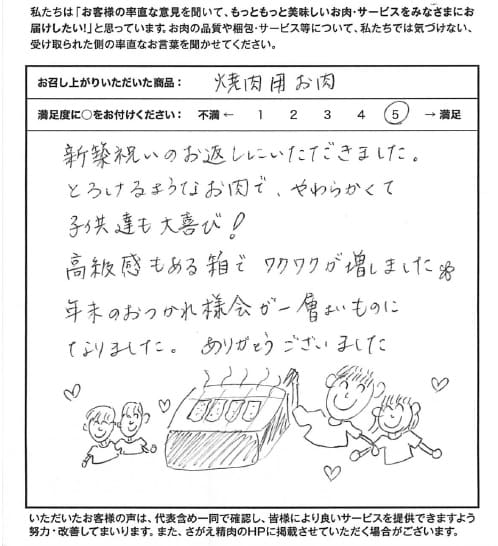 私たちは「お客様の率直な意見を聞いて、もっともっと美味しいお肉・サービスをみなさまにお
届けしたい!」と思っています。お肉の品質や梱包・サービス等について、私たちでは気づけない、
受け取られた側の率直なお言葉を聞かせてください。
お召し上がりいただいた商品： 焼肉用お肉
満足度に○をお付けください： 不満 ← 1 2 3 4 5 → 満足
新築祝いのお返しにいただきました。
とろけるようなお肉で、やわらかくて
子供達も大喜び!
高級感もある箱でワクワクが増しました
年末のおつかれ様会が一層よいものに
なりました。ありがとうございました
いただいたお客様の声は、代表含め一同で確認し、皆様により良いサービスを提供できますよう
努力・改善してまいります。また、さがえ精肉のHPに掲載させていただく場合がございます。